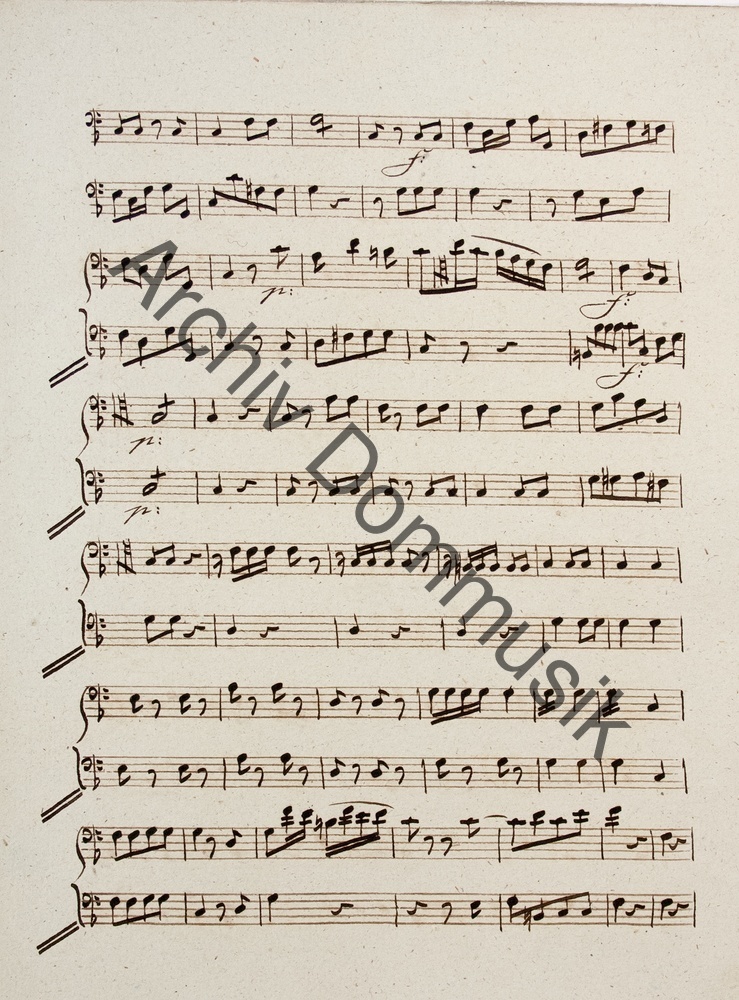 f:
p:
f:
f:
p:
p:
Archiv Dommusik